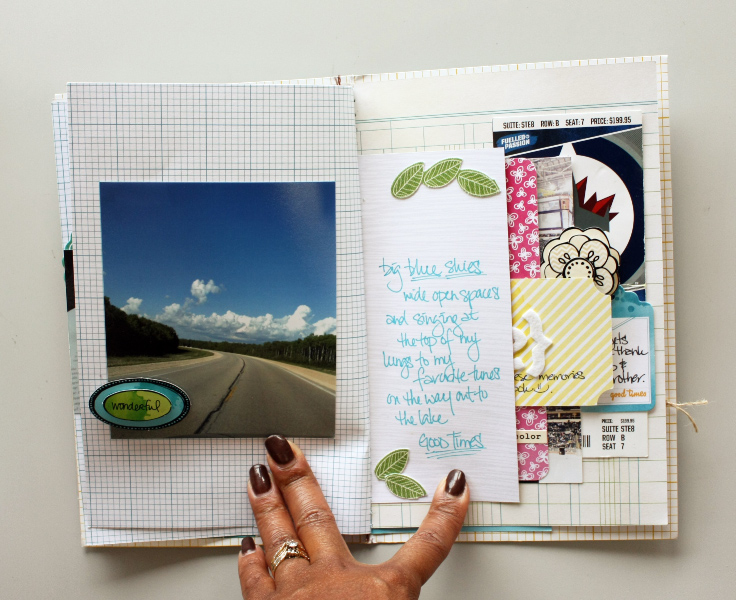 wonderful
big blue skies
wide open spaces
and singing at
the top of my
lungs to my
favorite tunes
on the way out to
the lake.
Good Times
SUITE: STE8 ROW: B SEAT: 7 PRICE: $199.95
FUELLED BY
PASSION
memories
thank
&
brother.
good times
color
PRICE: $199.95
SUITE STE8
ROW B
SEAT 7